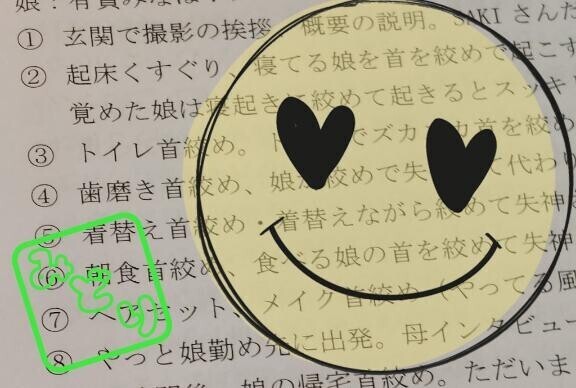 ① 玄関で撮影の挨拶、概要の説明。SAKI さんた
② 起床くすぐり、寝てる娘を首を絞めて起こす
覚めた娘は寝起きに絞めて起きるとスッキリ
③ トイレ首絞め。 でズカ カ首を絞め
④ 歯磨き首絞め、娘が絞めて失 て代わり
⑤ 着替え首絞め・着替えながら絞めて失神
⑥ 朝食首絞め、食べる娘の首を絞めて失神
⑦ ヘアセット、メイク首絞め(やってる風
⑧ やっと娘勤め先に出発。母インタビュー
娘の帰宅首絞め。ただいま
みどり